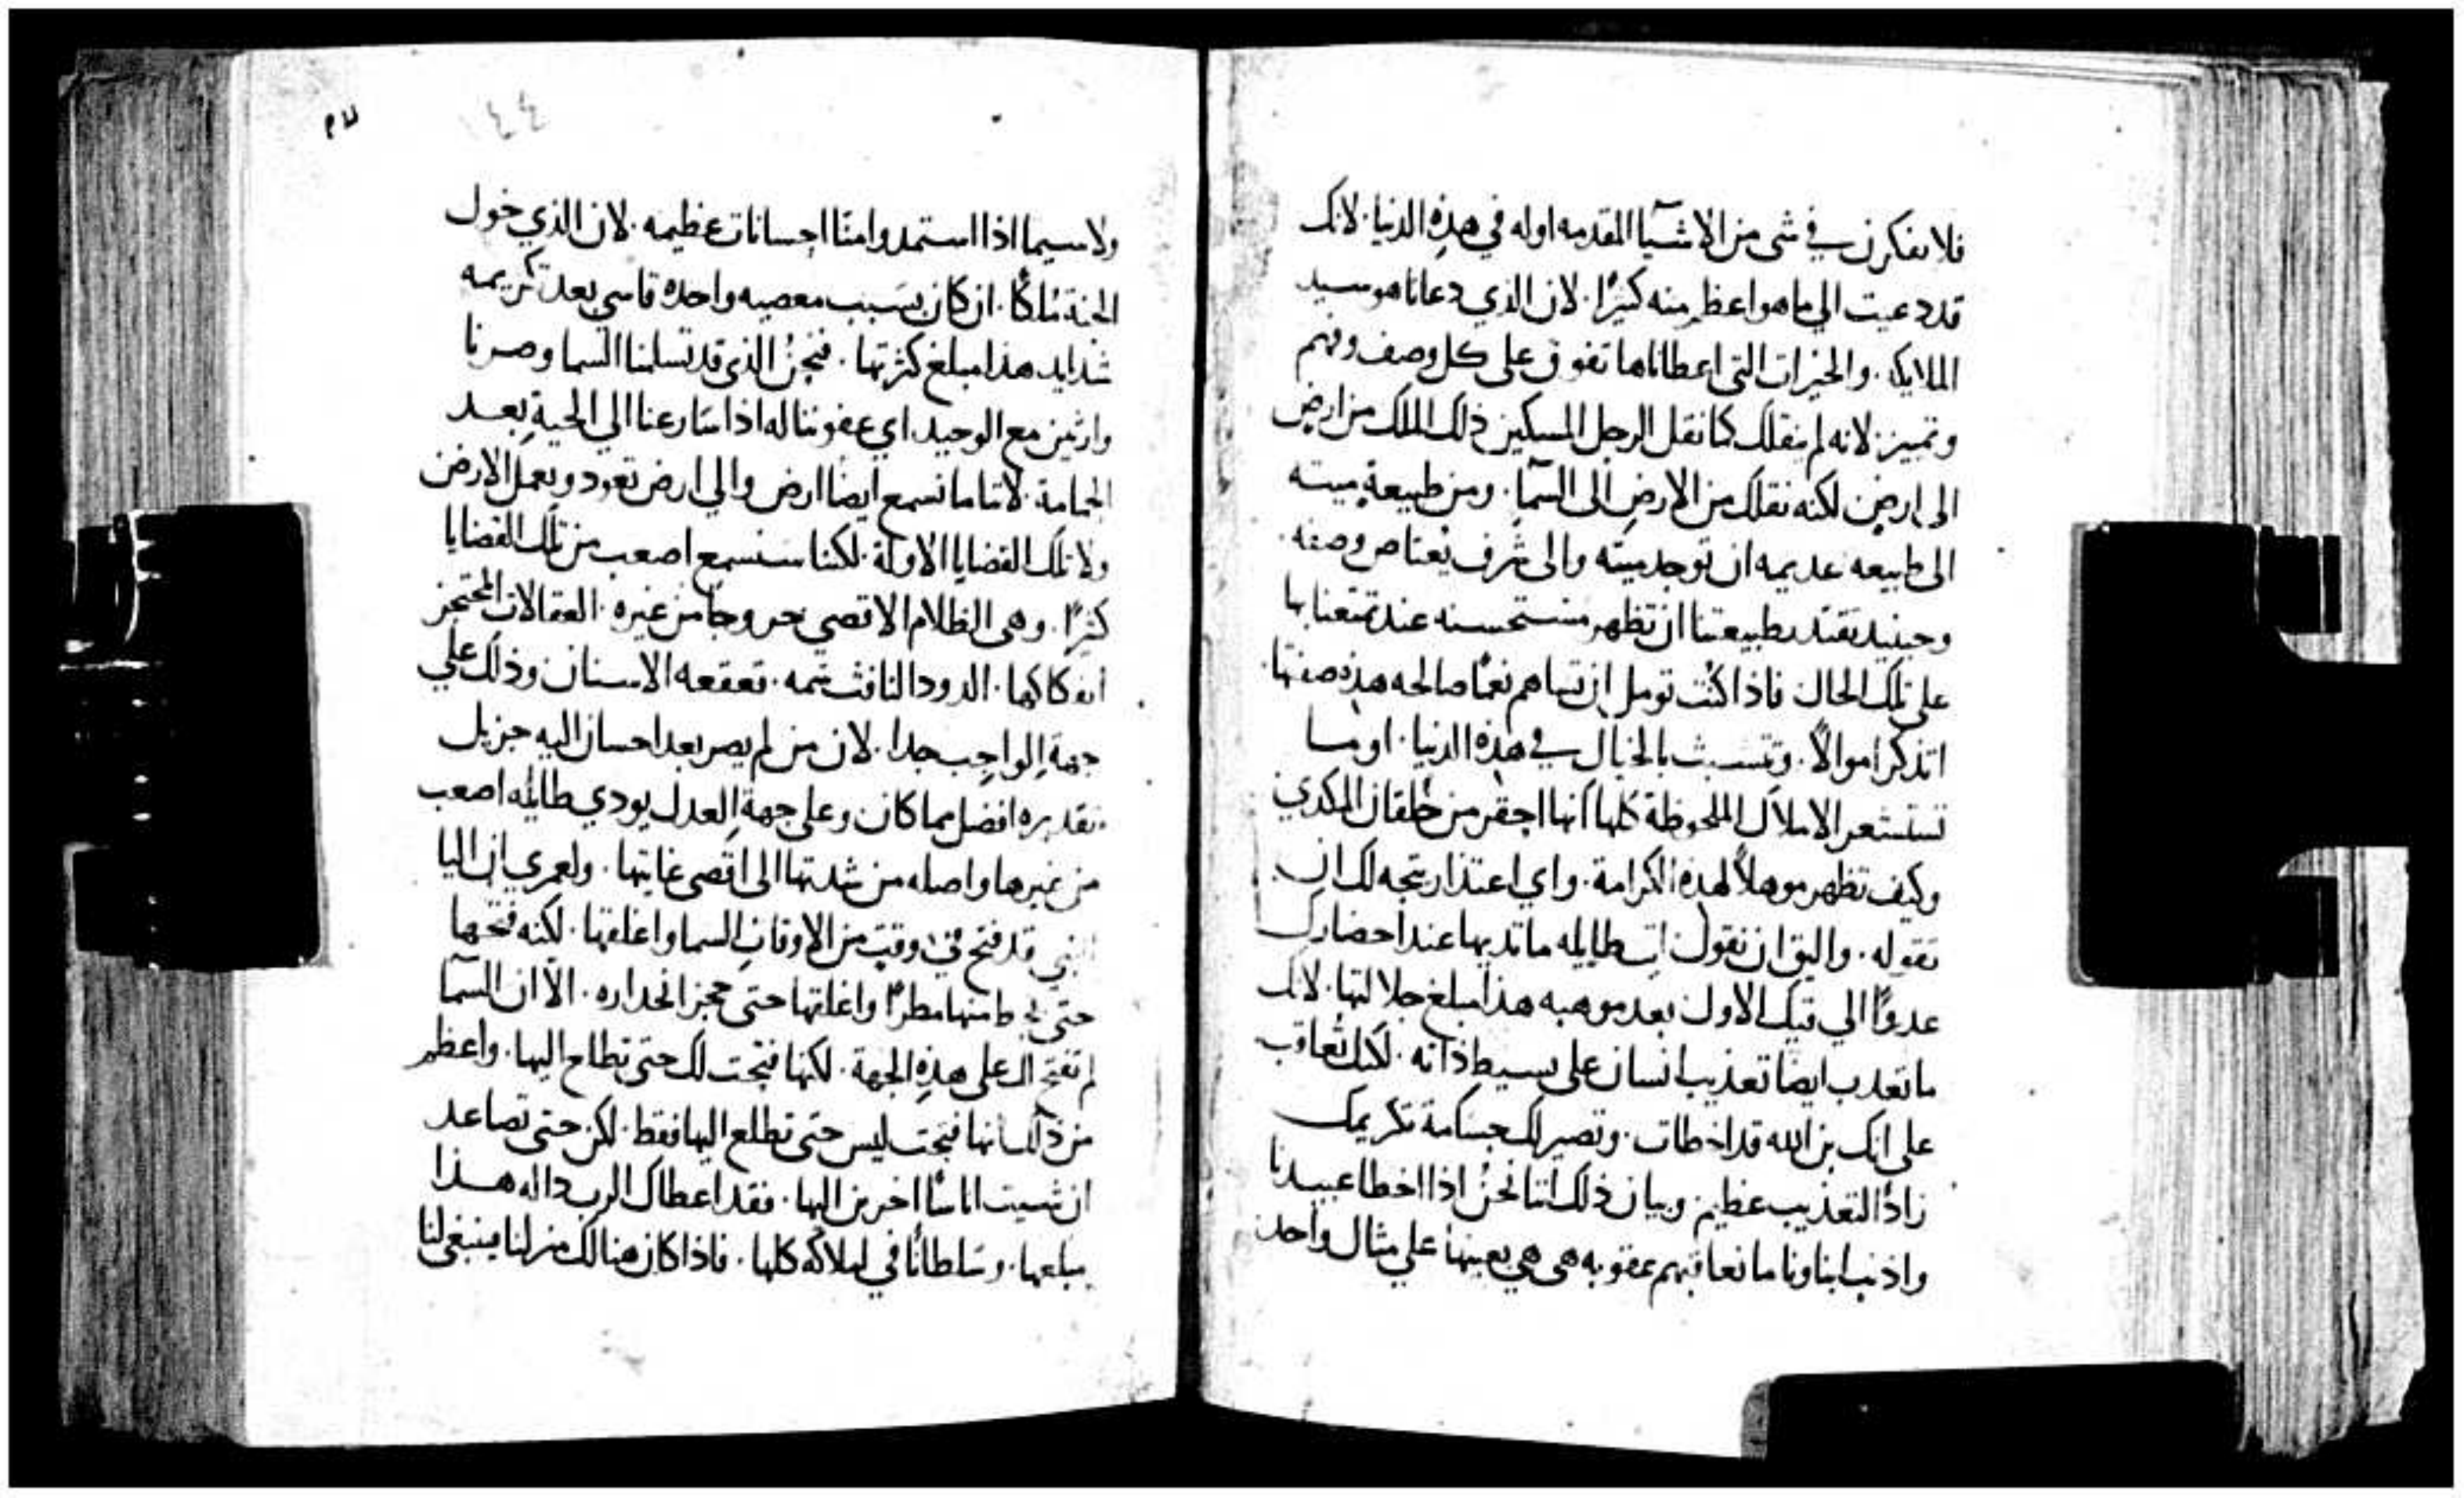 فلا تفكرن في شي من الاشيآ المقدمه اوله في هذِه الدنيا. لانك
قد دعيت الي ما هو اعظم منه كثيرًا. لان الذي دعانا هو سيد
الملايكه. والخيرات التي اعطاناها تفوق على كل وصف وفهم
وتمييز. لانه لم ينقلك كما نقل الرجل المسكين ذلك الملك من ارضٍ
الى ارضٍ لكنه نقلك من الارضِ الى السمآ. ومن طبيعةٍ ميته
الى طبيعه عديمه ان توجد ميته والى شرف يُعتاص وصفه.
وحينيذ تقتدر طبيعتنا ان تظهر مستحسنه عند تمتعنا بها
على تلك الحال فاذا كنت تومل ان تساهم نعمًا صالحه هذه صفتها
اتذكر اموالاً. وتتشبث بالخيال في هذه الدنيا. اوما
تستشعر الاملاك الملحوظة كلها انها احقر من خلقان المكدي
وكيف تظهر موهلاً لهذه الكرامة. واي اعتذار يتجه لك ان
تقوله. واليق ان نقول اي طايله ما تديها عند احضارك
عدوًا الي قيك الاول بعد موهبه هذا مبلغ جلالتها. لانك
ما تعدب ايضا تعذيب انسان على بسيط ذاته. لكنك تُعاقب
على انك بن الله قد اخطات. وتصير لك جسامة تكريمك
زادًا لتعذيب عظيم وبيان ذلك اننا نحنُ اذا اخطا عبيدنا
واذنب ابناونا ما نعاقبهم عقوبه هي هي بعينها علي مثال واحد
١٤٤
ولاسيما اذا استمدوا منّا احسانات عظيمه. لان الذي خول
الجنة مُلكًا. ان كان بسَبب معصيه واحده قاسي بعد تكريمه
شدايد هذا مبلغ كثرتها. فنحنُ الذي قد تسلمنا السما وصرنا
وارثين مع الوحيد اي عفو ننا له اذا سَارعنا الي الحية بعد
الحمامة. لاننا ما نسمع ايضًا ارض والي ارض تعود وتعمل الارض
ولا تلك القضايا الاولة. لكننا سنسمع اصعب من تلك القضايا
كثيرًا. وهى الظلام الاقصي خروجا من غيره. العقالات الممتحز
انفكاكها. الدود النافث سَمه. تقعقعه الاسنان وذلك علي
جهة الواجبِ جدا. لان من لم يصر بعد احسان اليه جزيل
تقديره افضل مما كان وعلي جهة العدل يودي طايله اصعب
من غيرها واصله من شدتها الى اقصي غايتها. ولعمري ان اليا
النبي قد فتح في وقت من الاوقاتِ السما واغلقها. لكنه فتحها
حتى يحط منها مطرًا واغلقها حتى حجز انحداره. الاّ ان السمآ
لم تفتح لك على هذِه الجهة. لكنها فتحت لك حتى تطلع اليها. واعظم
من ذلك انها فتحت ليس حتى تطلع اليها فقط. لكن حتى تصاعد
ان شيت اناسًا اخرين اليها. فقد اعطاك الرب داله هذا
مبلغها. وسَلطانًا في املاكه كلها. فاذا كان هنالك منزلنا فينبغي لنا